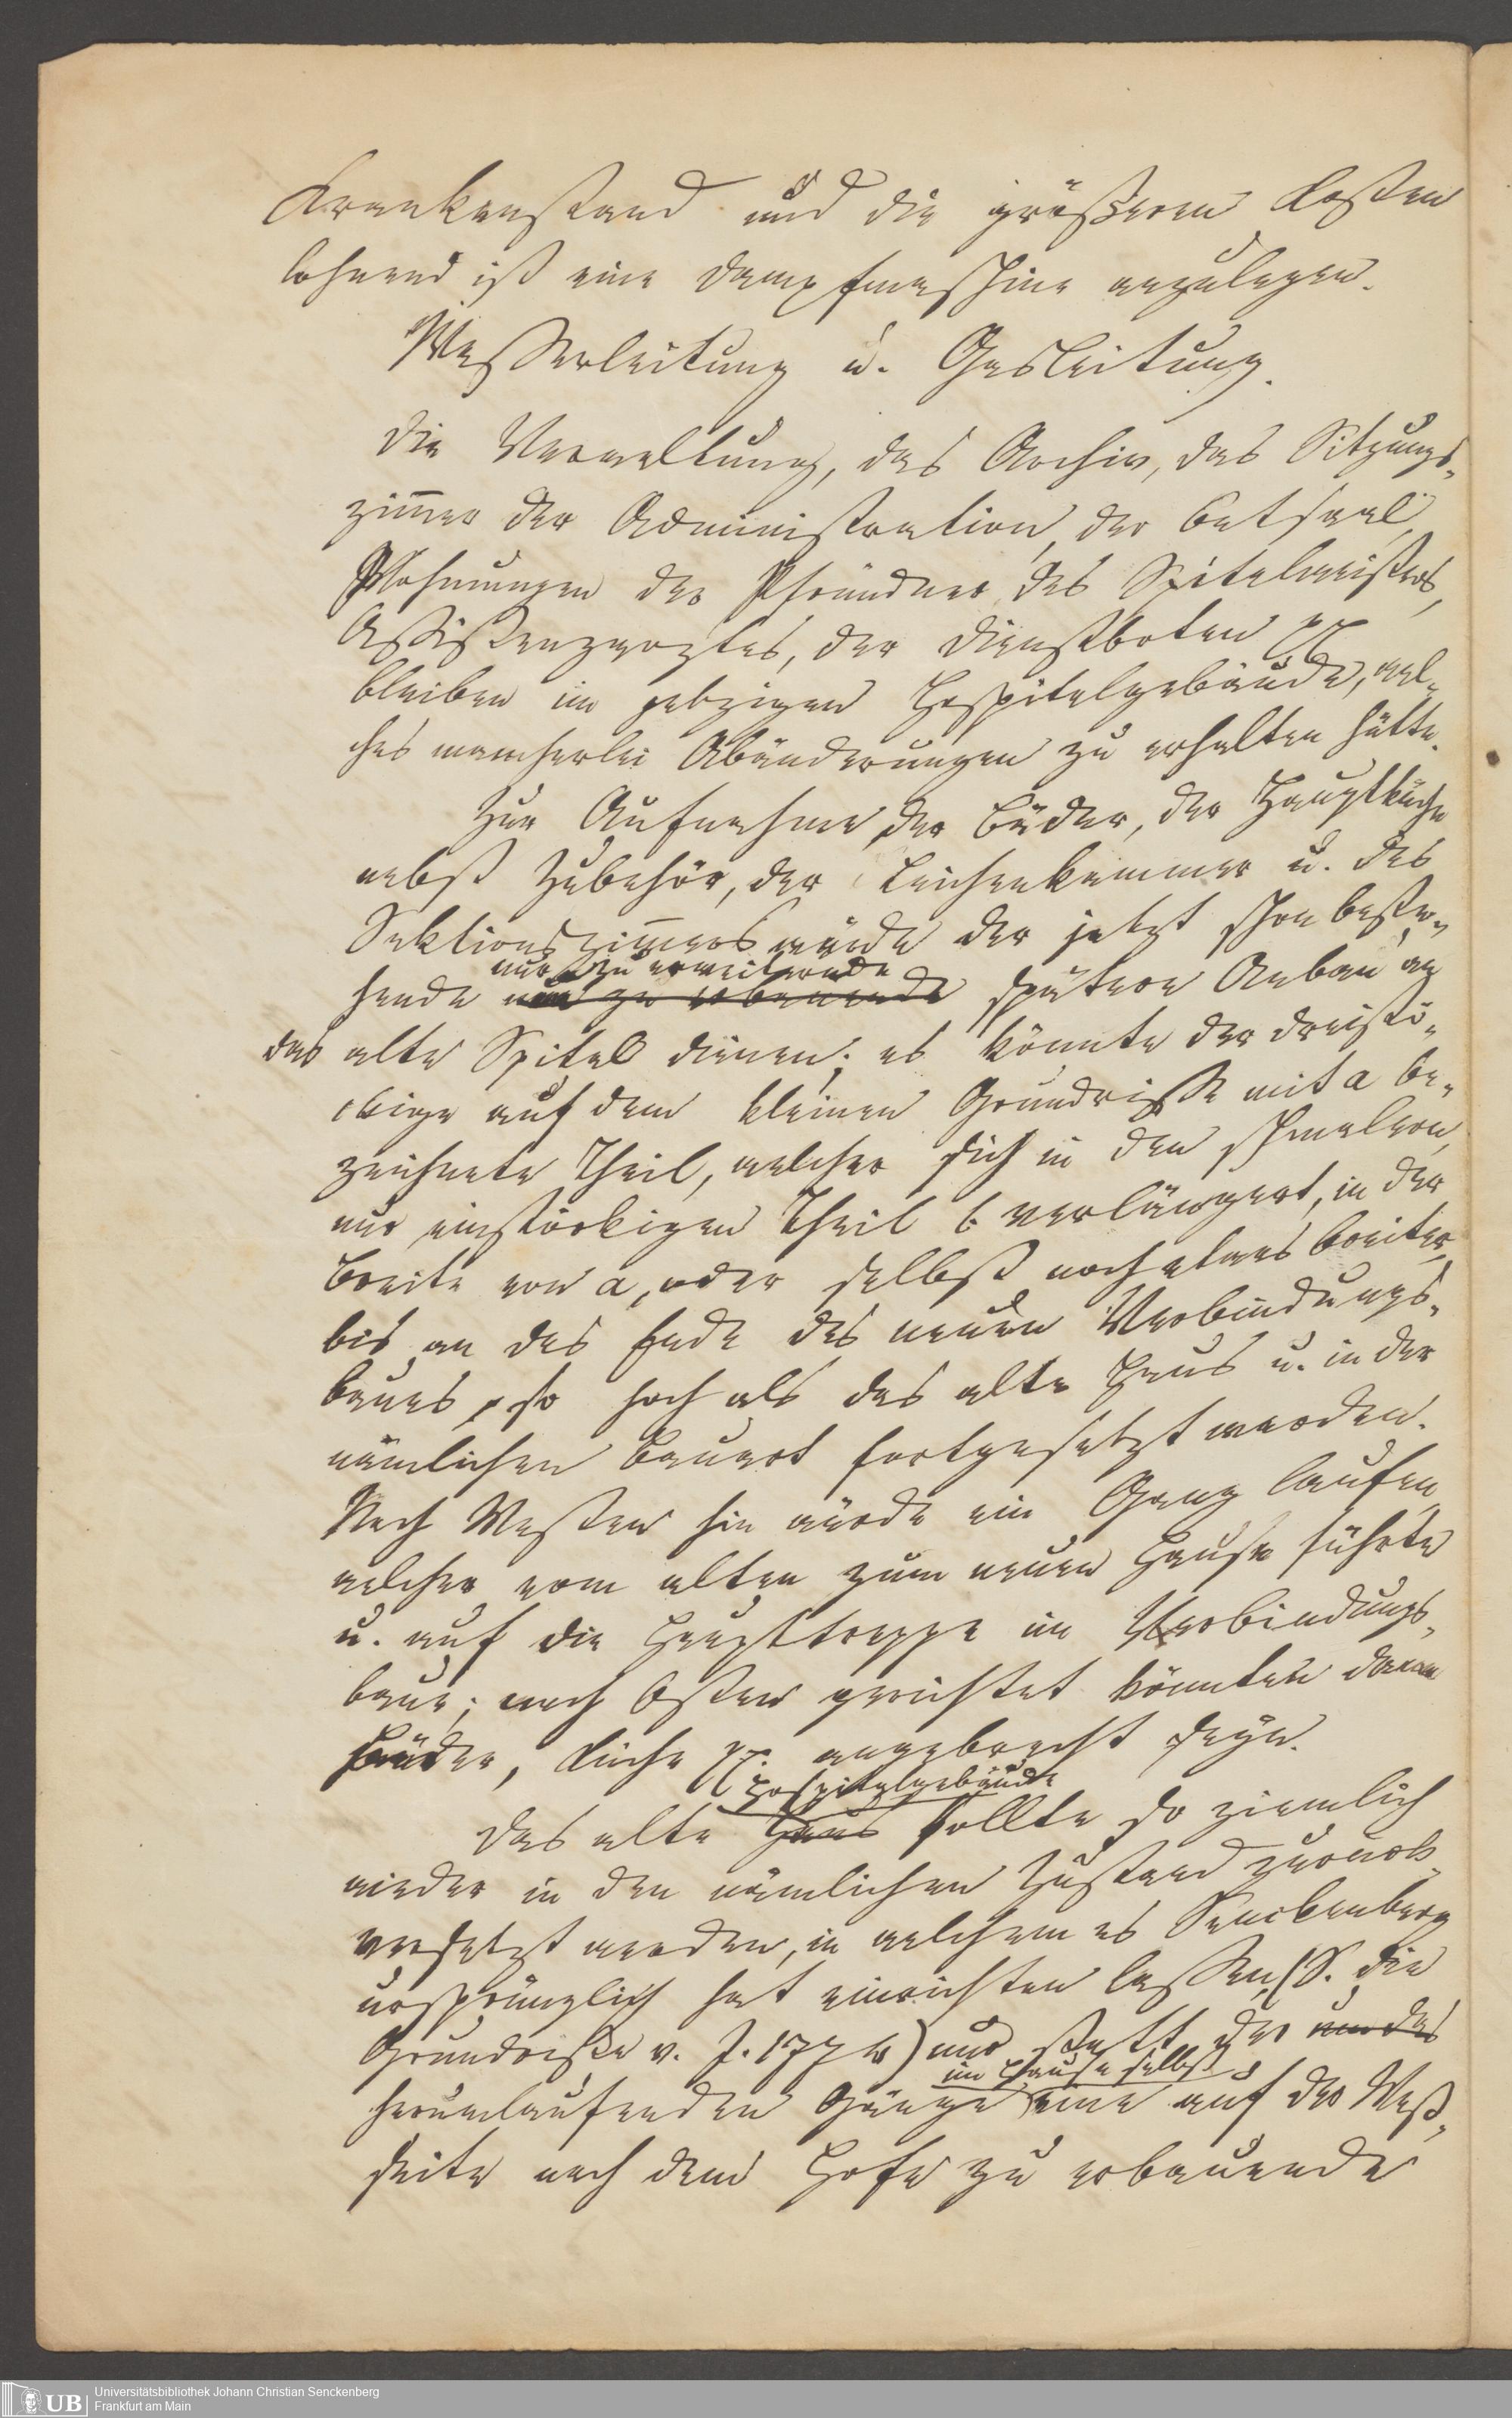 Krankenstand und die größeren Kosten
lohnend ist eine Dampfmaschine anzulegen.
Wasserleitung u. Gasleitung.
Die Verwaltung, das Archiv, das Sitzungs-
zimmer der Administration, der Betsaal,
Wohnungen der Pfründner, des Spitalmeisters,
Assistenzarztes, der Dienstboten pp
bleiben im jetzigen Hospitalgebäude, wel-
ches mancherlei Abänderungen zu erhalten hätte.
Zur Aufnahme der Bäder, der Hauptküche
nebst Zubehör, der Leichenkammer u. des
Sektionszimmers würde der jetzt schon beste-
nur zu erweiternde
hende nur zu erbauende spätere Anbau an
das alte Spital dienen; es könnte der dreistö-
ckige auf dem kleinen Grundrisse mit a be-
zeichnete Theil, welcher sich in den schmaleren,
nur einstöckigen Theil b verlängert, in der
Breite von a, oder selbst noch etwas breiter,
bis an das Ende des neuen Verbindungs-
baues, so hoch als das alte Haus u. in der
nämlichen Bauart fortgesetzt werden.
Nach Westen hin würde ein Gang laufen,
welcher vom alten zum neuen Hause führte
u. auf die Haupttreppe im Verbindungs-
baue; nach Osten gerichtet könnten dann
Bäder, Küche pp. angebracht seyn.
Hospitalgebäude
Das alte Haus sollte so ziemlich
wieder in den nämlichen Zustand zurück-
versetzt werden, in welchem es Senckenberg
ursprünglich hat einrichten lassen, (S. die
Grundrisse v. J. 177) und statt der um das
im Hause selbst
herumlaufenden Gänge eine auf der West-
seite nach dem Hofe zu erbauende
Universitätsbibliothek Johann Christian Senckenberg
Frankfurt am Main
UB